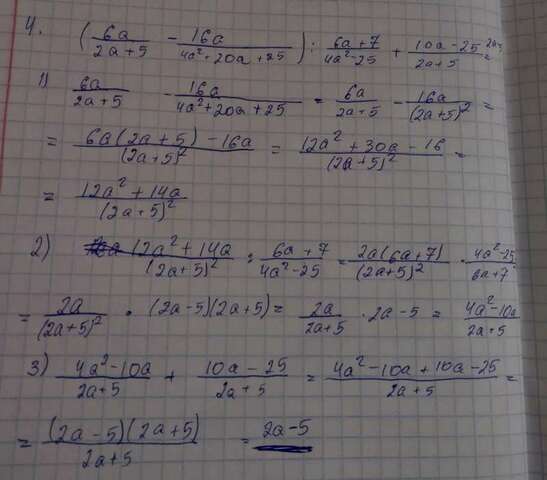 4. (6a/(2a+5) - 16a/(4a²+20a+25)) : (6a+7)/(4a²-25) + (10a-25)/(2a+5) =
1) 6a/(2a+5) - 16a/(4a²+20a+25) = 6a/(2a+5) - 16a/(2a+5)² =
= (6a(2a+5)-16a)/(2a+5)² = (12a²+30a-16)/(2a+5)² =
= (12a²+14a)/(2a+5)²
2) (12a²+14a)/(2a+5)² : (6a+7)/(4a²-25) = 2a(6a+7)/(2a+5)² · (4a²-25)/(6a+7)
= 2a/(2a+5)² · (2a-5)(2a+5) = 2a/(2a+5) · 2a-5 = (4a²-10a)/(2a+5)
3) (4a²-10a)/(2a+5) + (10a-25)/(2a+5) = (4a²-10a+10a-25)/(2a+5) =
= (2a-5)(2a+5)/(2a+5) = 2a-5